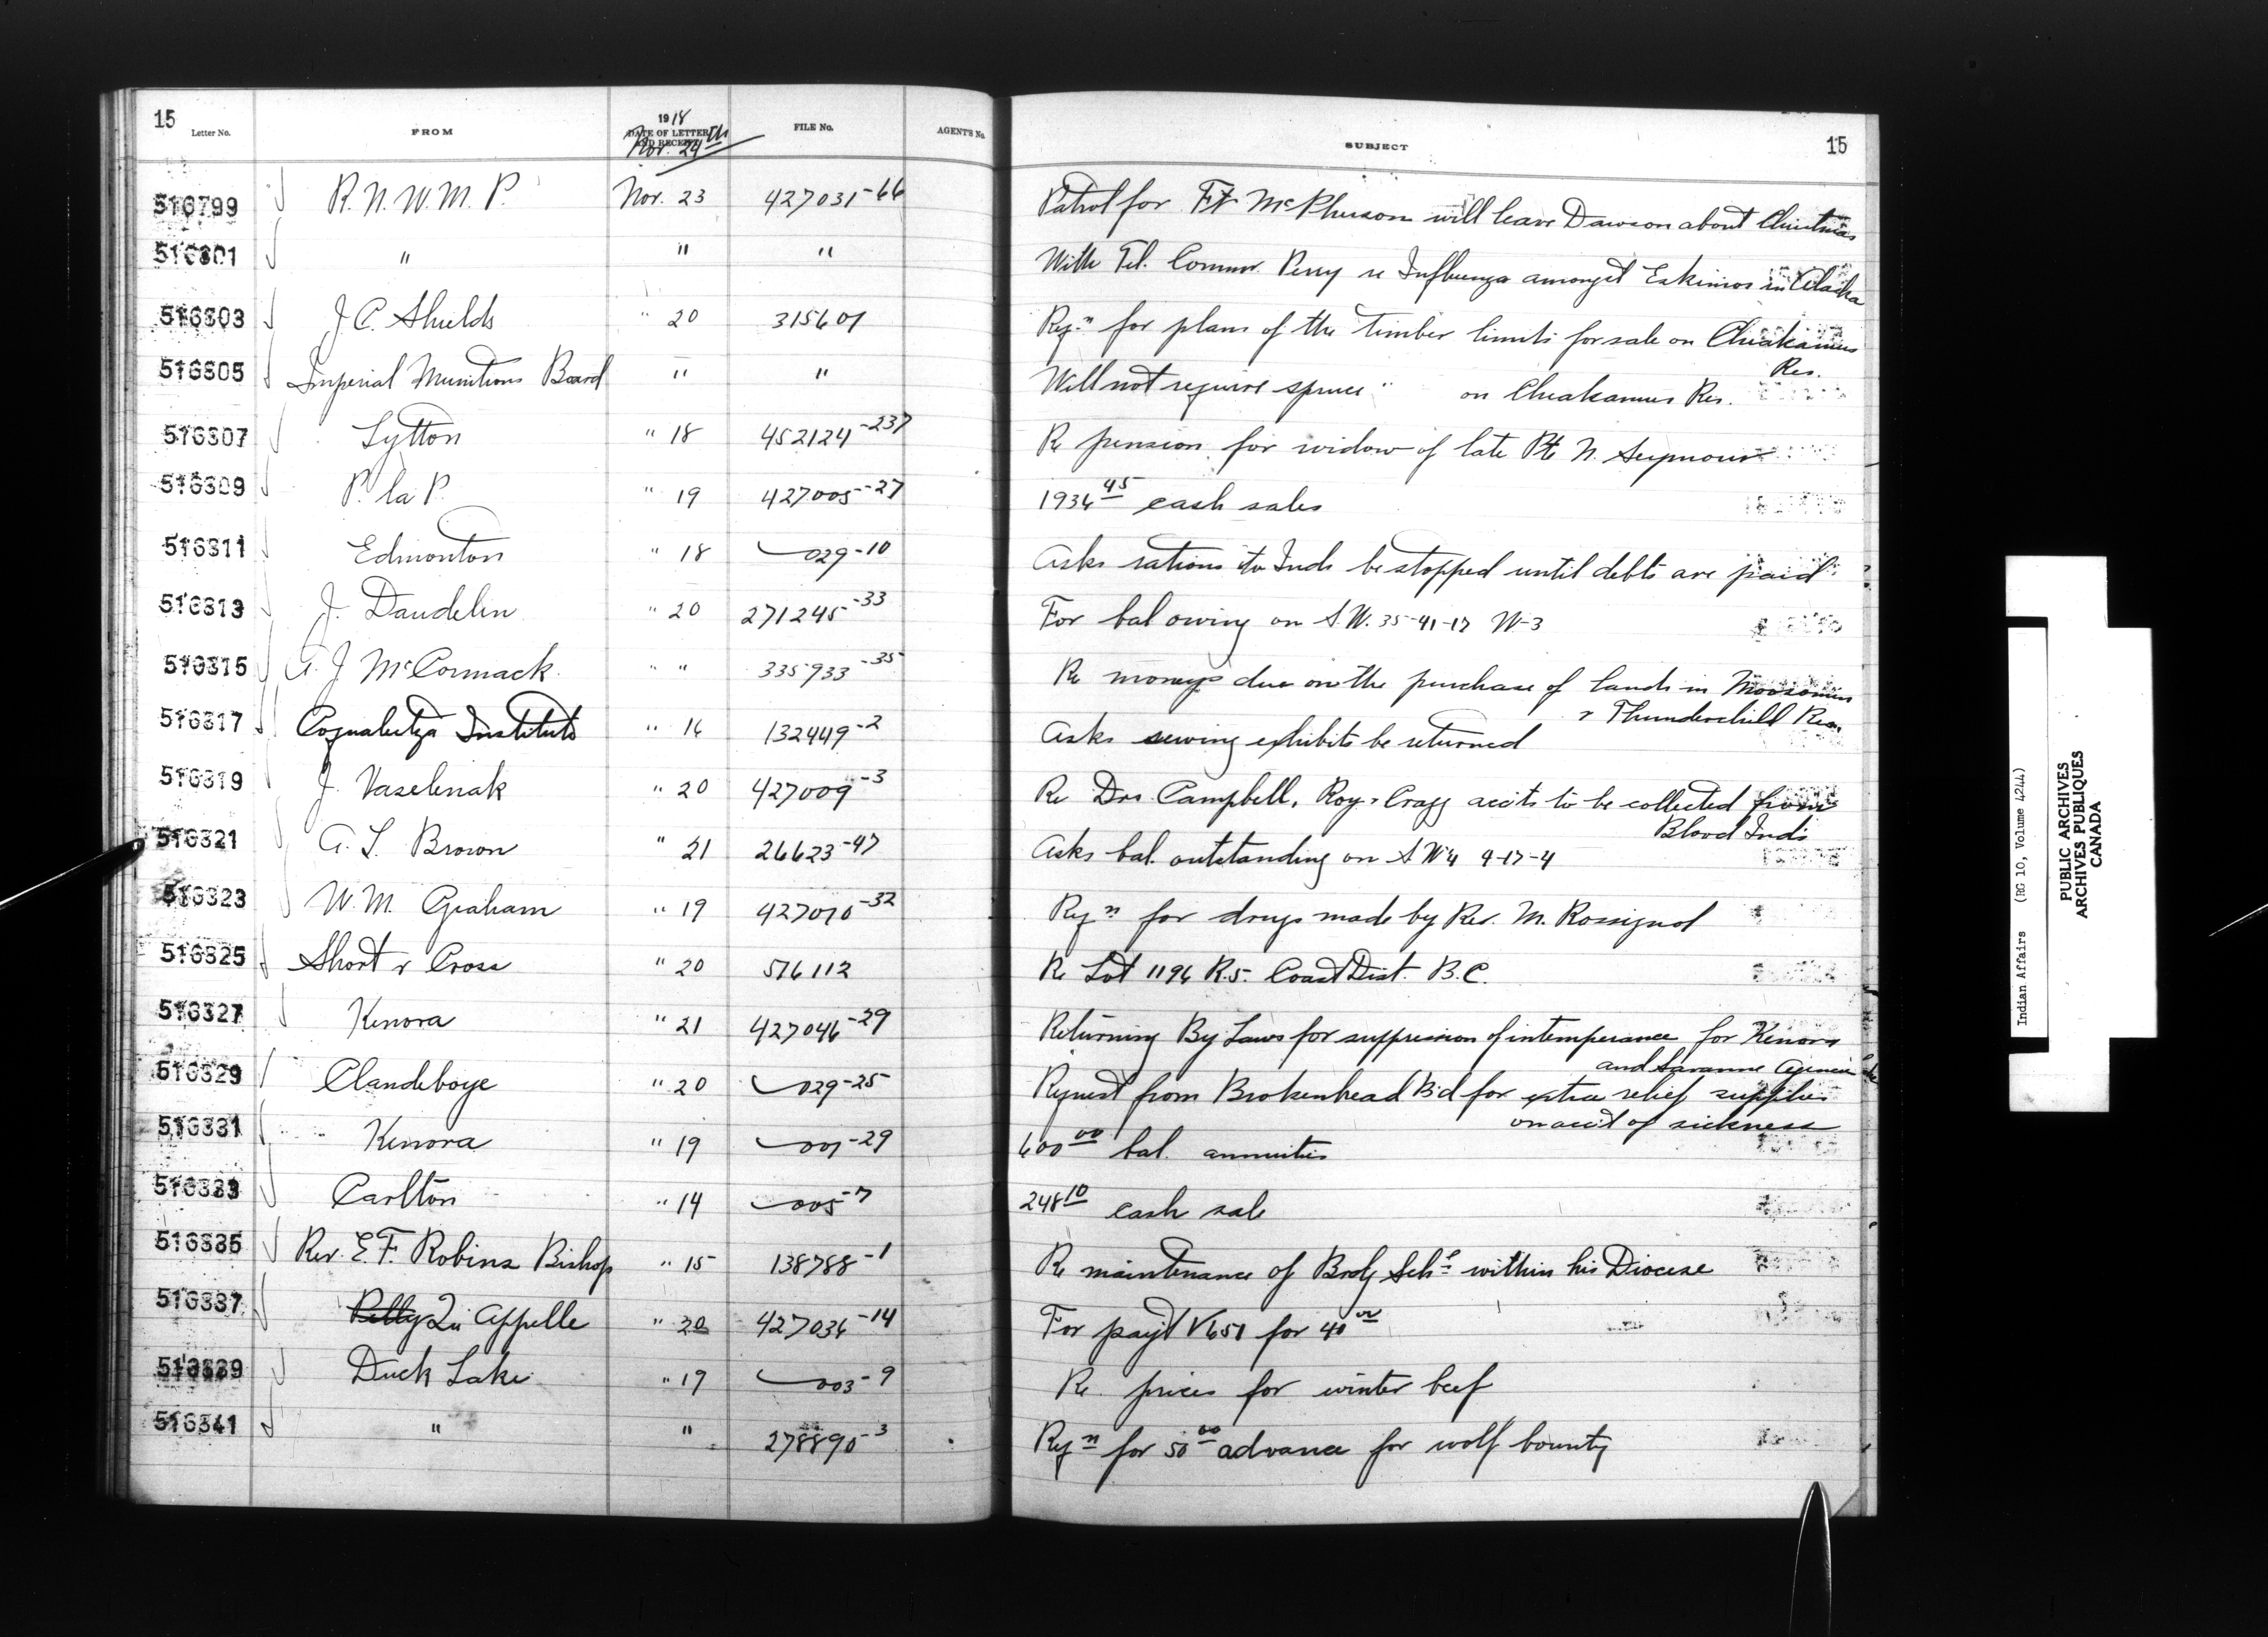 15
Letter No. FROM 1918 DATE OF LETTER AND RECEIPT FILE No. AGENT'S No. SUBJECT 15
Nov. 29th
516799 R. N. W. M. P. Nov. 23 427031-66 Patrol for Ft McPherson will leave Dawson about Christmas
516801 " " " With Tel. Commr. Perry re Influenza amongst Eskimos in Alaska
516803 J C. Shields " 20 315601 Reqn for plans of the timber limits for sale on Cheakamus Res.
516805 Imperial Munitions Board " " Will not require spruce " on Cheakamus Res.
516807 Lytton " 18 452124-237 Re pension for widow of late Pte N. Seymour
516809 P. la P. " 19 427005-27 1936 45 cash sales
516811 Edmonton " 18 029-10 Asks rations to Inds be stopped until debts are paid
516813 J. Daudelin " 20 271245-33 For bal owing on S.W. 35-41-17 W-3
516815 A. J McCormack " " 335933-35 Re moneys due on the purchase of lands in Moosomin
& Thunderchild Res.
516817 Coqualeetza Institute " 16 132449-2 Asks sewing exhibits be returned
516819 J. Vaselenak " 20 427009-3 Re Drs. Campbell, Roy & Cragg accts to be collected from
Blood Inds
516821 A. L. Brown " 21 26623-47 Asks bal. outstanding on S W 4 9-17-4
516823 W. M. Graham " 19 427010-32 Reqn for drugs made by Rev. M. Rossignol
516825 Short & Cross " 20 516112 Re Lot 1196 R.5. Coast Dist. B.C.
516827 Kenora " 21 427046-29 Returning By Laws for suppression of intemperance for Kenora
and Savanne Agencies
516829 Clandeboye " 20 029-25 Request from Brokenhead Bd for extra relief supplies
on acct of sickness
516831 Kenora " 19 001-29 600 00 bal. annuities
516833 Carlton " 14 005-7 248 10 cash sale
516835 Rev. E. F. Robins Bishop " 15 138788-1 Re maintenance of Brdg Schs within his Diocese
516837 Qu Appelle " 20 427036-14 For payt V651 for 40 00
516839 Duck Lake " 19 003-9 Re prices for winter beef
516841 " " 278890-3 Reqn for 50 00 advance for wolf bounty
Indian Affairs (RG 10, Volume 4244)
PUBLIC ARCHIVES
ARCHIVES PUBLIQUES
CANADA